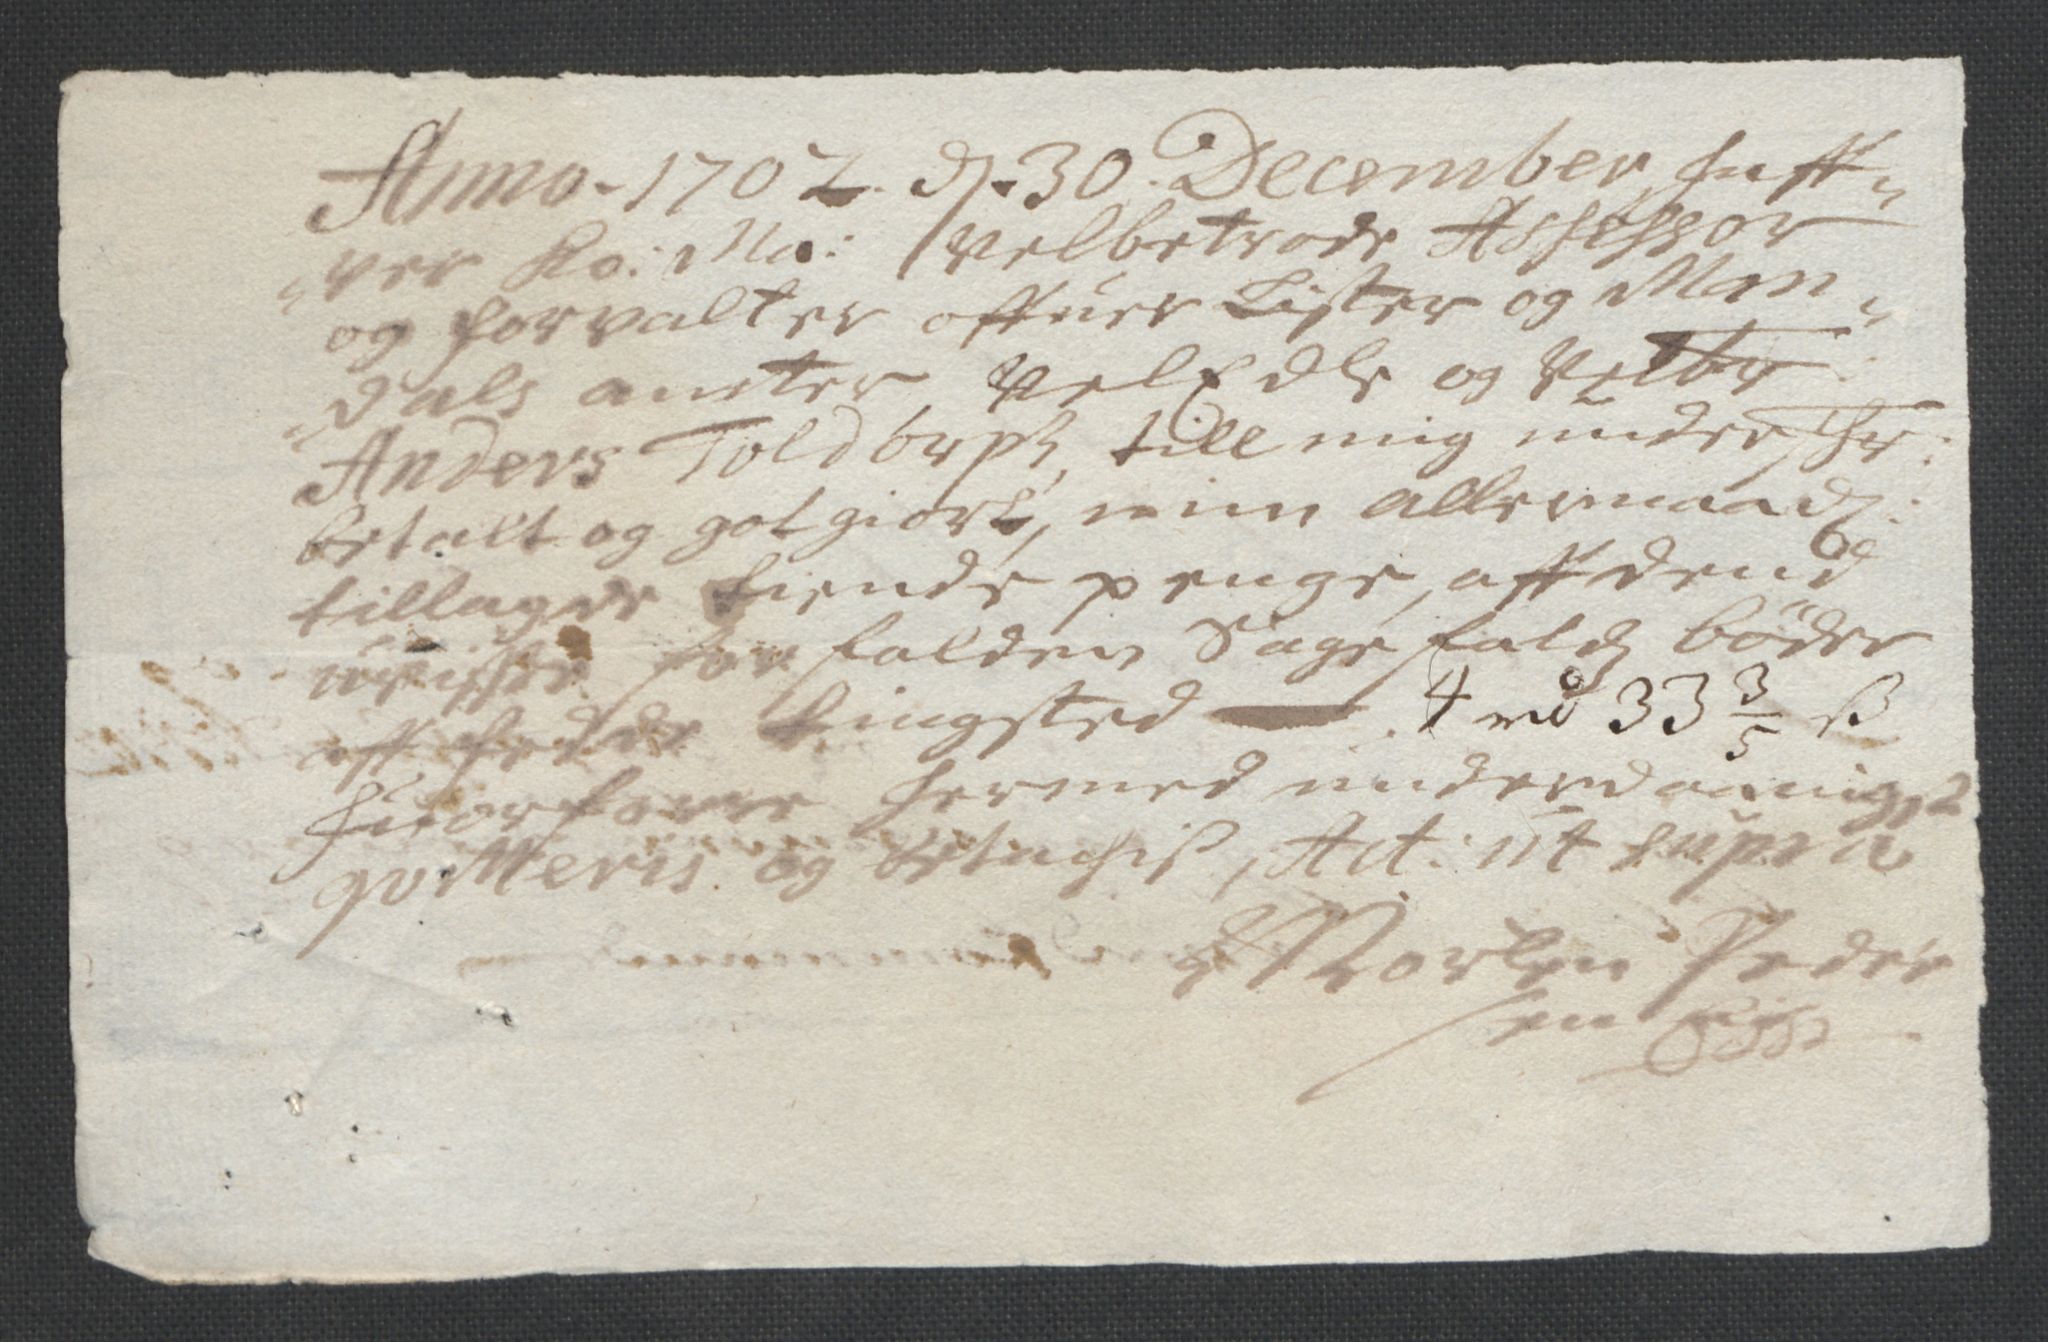 Anno 1702 d. 30 December, haff-
"ver Ko: Ma: Velbetrode Assessor
og forvalter offuer Lister og Man "
"dals ambter, Vel Edle og Velbr:
Anders Toldorph, till mig under Skr:
betalt og gotgiort, min allernaad:
tillagde tiende penge, aff dend
uvisse forfalden Sagefalds bøder
aff fedde tingsted — 4 rd 33 3/5 ß
huorfore hermed underdanigst
qvitteris og betachis, Act: ut supra
Morten Peder
sen